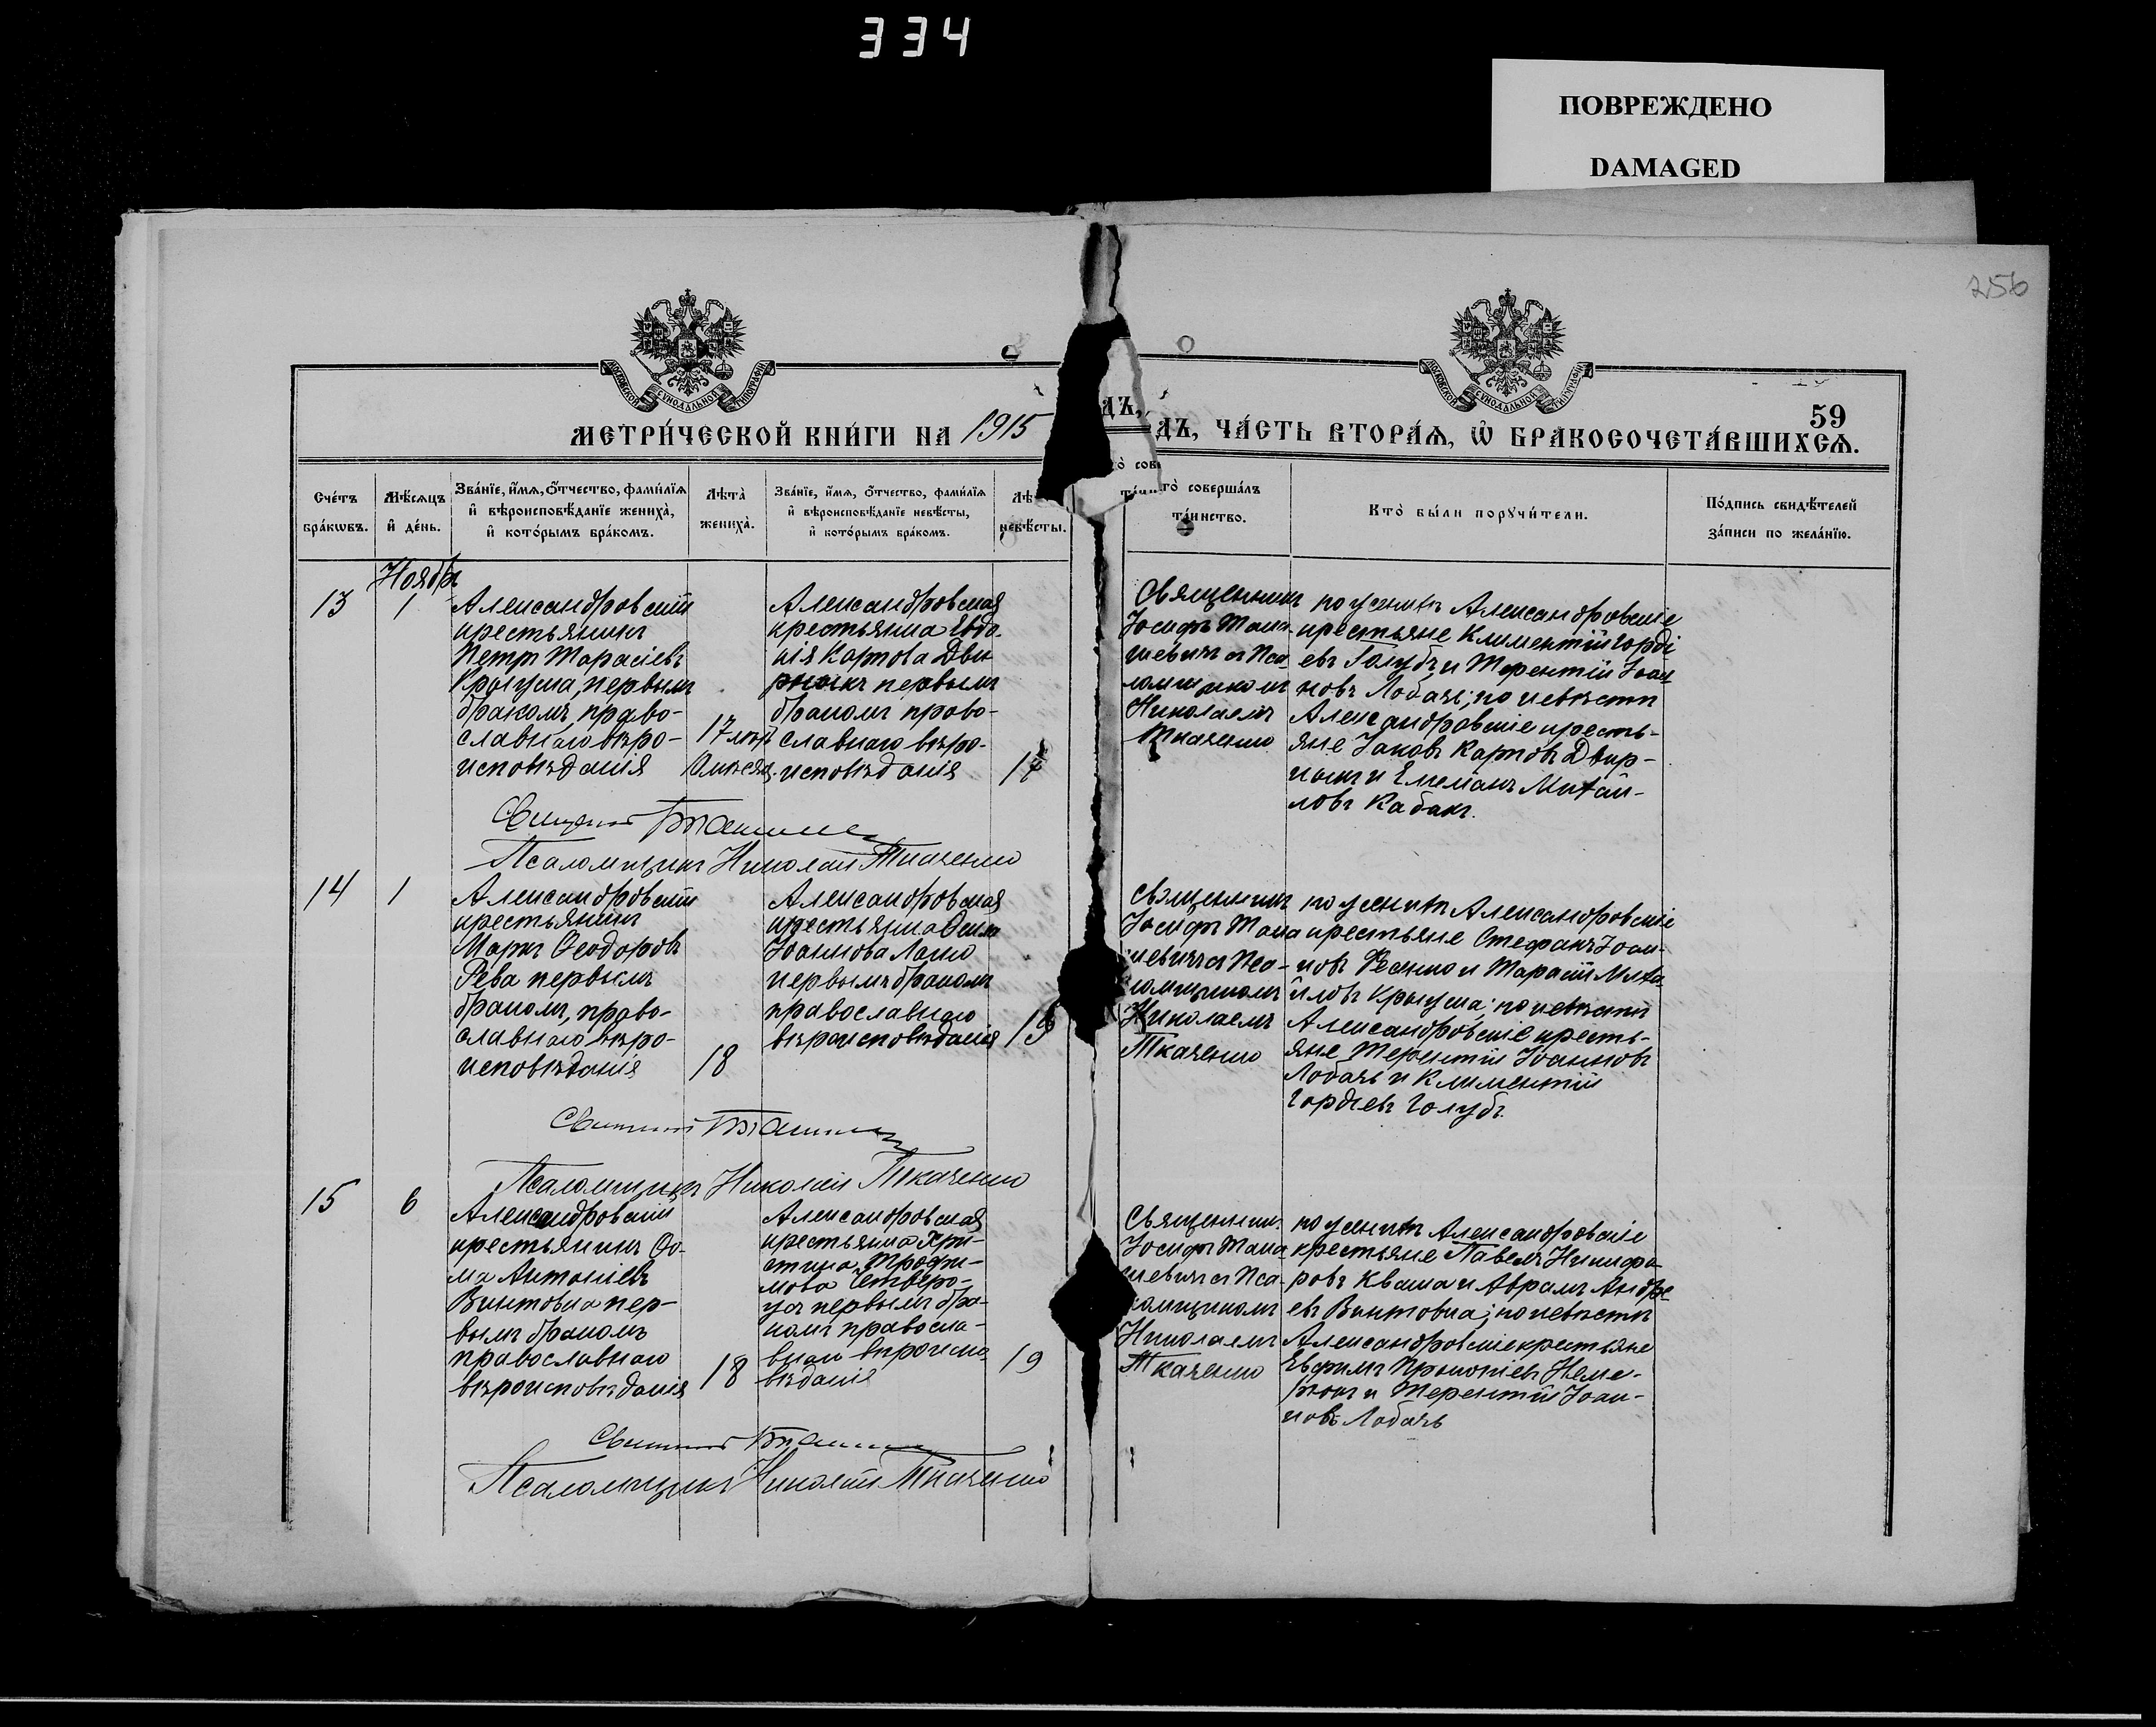 334
ПОВРЕЖДЕНО
DAMAGED
256
59
МЕТРИ́ЧЕСКОЙ КНИ́ГИ НА 1915
ДЪ, ЧА́СТЬ ВТОРА́Я, Ѽ БРАКОСОЧЕТА́ВШИХСЯ.
Сче́тъ бра́кωвъ.
Мѣ́сяцъ и҆ де́нь.
Зва́нїе, и҆́мѧ, ѻ҆́тчество, фами́лїѧ
и҆ вѣроисповѣ́данїе жениха̀,
и҆ кото́рымъ бра́комъ.
Лѣта̀ жениха̀.
Зва́нїе, и҆́мѧ, ѻ҆́тчество, фами́лїѧ
и҆ вѣроисповѣ́данїе невѣ́сты,
и҆ кото́рымъ бра́комъ.
невѣ́сты.
то̀ соверша́лъ
та́инство.
Кто̀ бы́ли порꙋчи́тели.
По́дпись свидѣ́телей
за́писи по жела́нїю.
Ноябрь
13
1
Александровскій
крестьянинъ
Петръ Тарасіевъ
первымъ
бракомъ, право-
славнаго вѣро-
исповѣданія
17 лѣтъ
Александровская
крестьянка Евдо-
кія Карпова Дви
первымъ
бракомъ право-
славнаго вѣро-
исповѣданія
17
Священникъ
Іосифъ Тома-
шевичъ съ Пса-
ломщикомъ
Николаемъ
Ткаченко
по женихѣ Александровскіе
крестьяне Климентій Горді
евъ Голубъ и Терентій Іоан
новъ Лобачъ; по невѣстѣ
Александровскіе кресть-
яне Іаковъ Карповъ Двир-
никъ и Емеліанъ Михаи-
ловъ Кабакъ.
Псаломщикъ Николай Ткаченко
14
1
Александровскій
крестьянинъ
Маркъ Ѳеодоровъ
Рева первымъ
бракомъ, право-
славнаго вѣро-
исповѣданія
18
Александровская
крестьянка
Іоаннова
первымъ бракомъ
православнаго
вѣроисповѣданія
19
Священникъ
Іосифъ Тома
шевичъ съ Пса-
ломщикомъ
Николаемъ
Ткаченко
по женихѣ Александровскіе
крестьяне Стефанъ Іоан-
новъ и Тарасій Миха-
иловъ по невѣстѣ
Александровскіе кресть-
яне Терентій Іоанновъ
Лобачъ и Климентій
Гордіевъ Голубъ.
Псаломщикъ Николай Ткаченко
15
6
Александровскій
крестьянинъ Ѳо-
ма Антоніевъ
Винтовка пер-
вымъ бракомъ
православнаго
вѣроисповѣданія
18
Александровская
крестьянка Хри-
стина Трофи-
мова Четверо-
первымъ бра-
комъ правосла-
внаго вѣроиспо-
вѣданія
19
Священникъ
Іосифъ Тома
шевичъ съ Пса-
ломщикомъ
Николаемъ
Ткаченко
по женихѣ Александровскіе
крестьяне Павелъ Никифо
ровъ Кваша и Аврамъ Андре
евъ Винтовка; по невѣстѣ
Александровскіе крестьяне
Евфимъ Прокопіевъ
и Терентій Іоан-
новъ Лобачъ
Псаломщикъ Николай Ткаченко